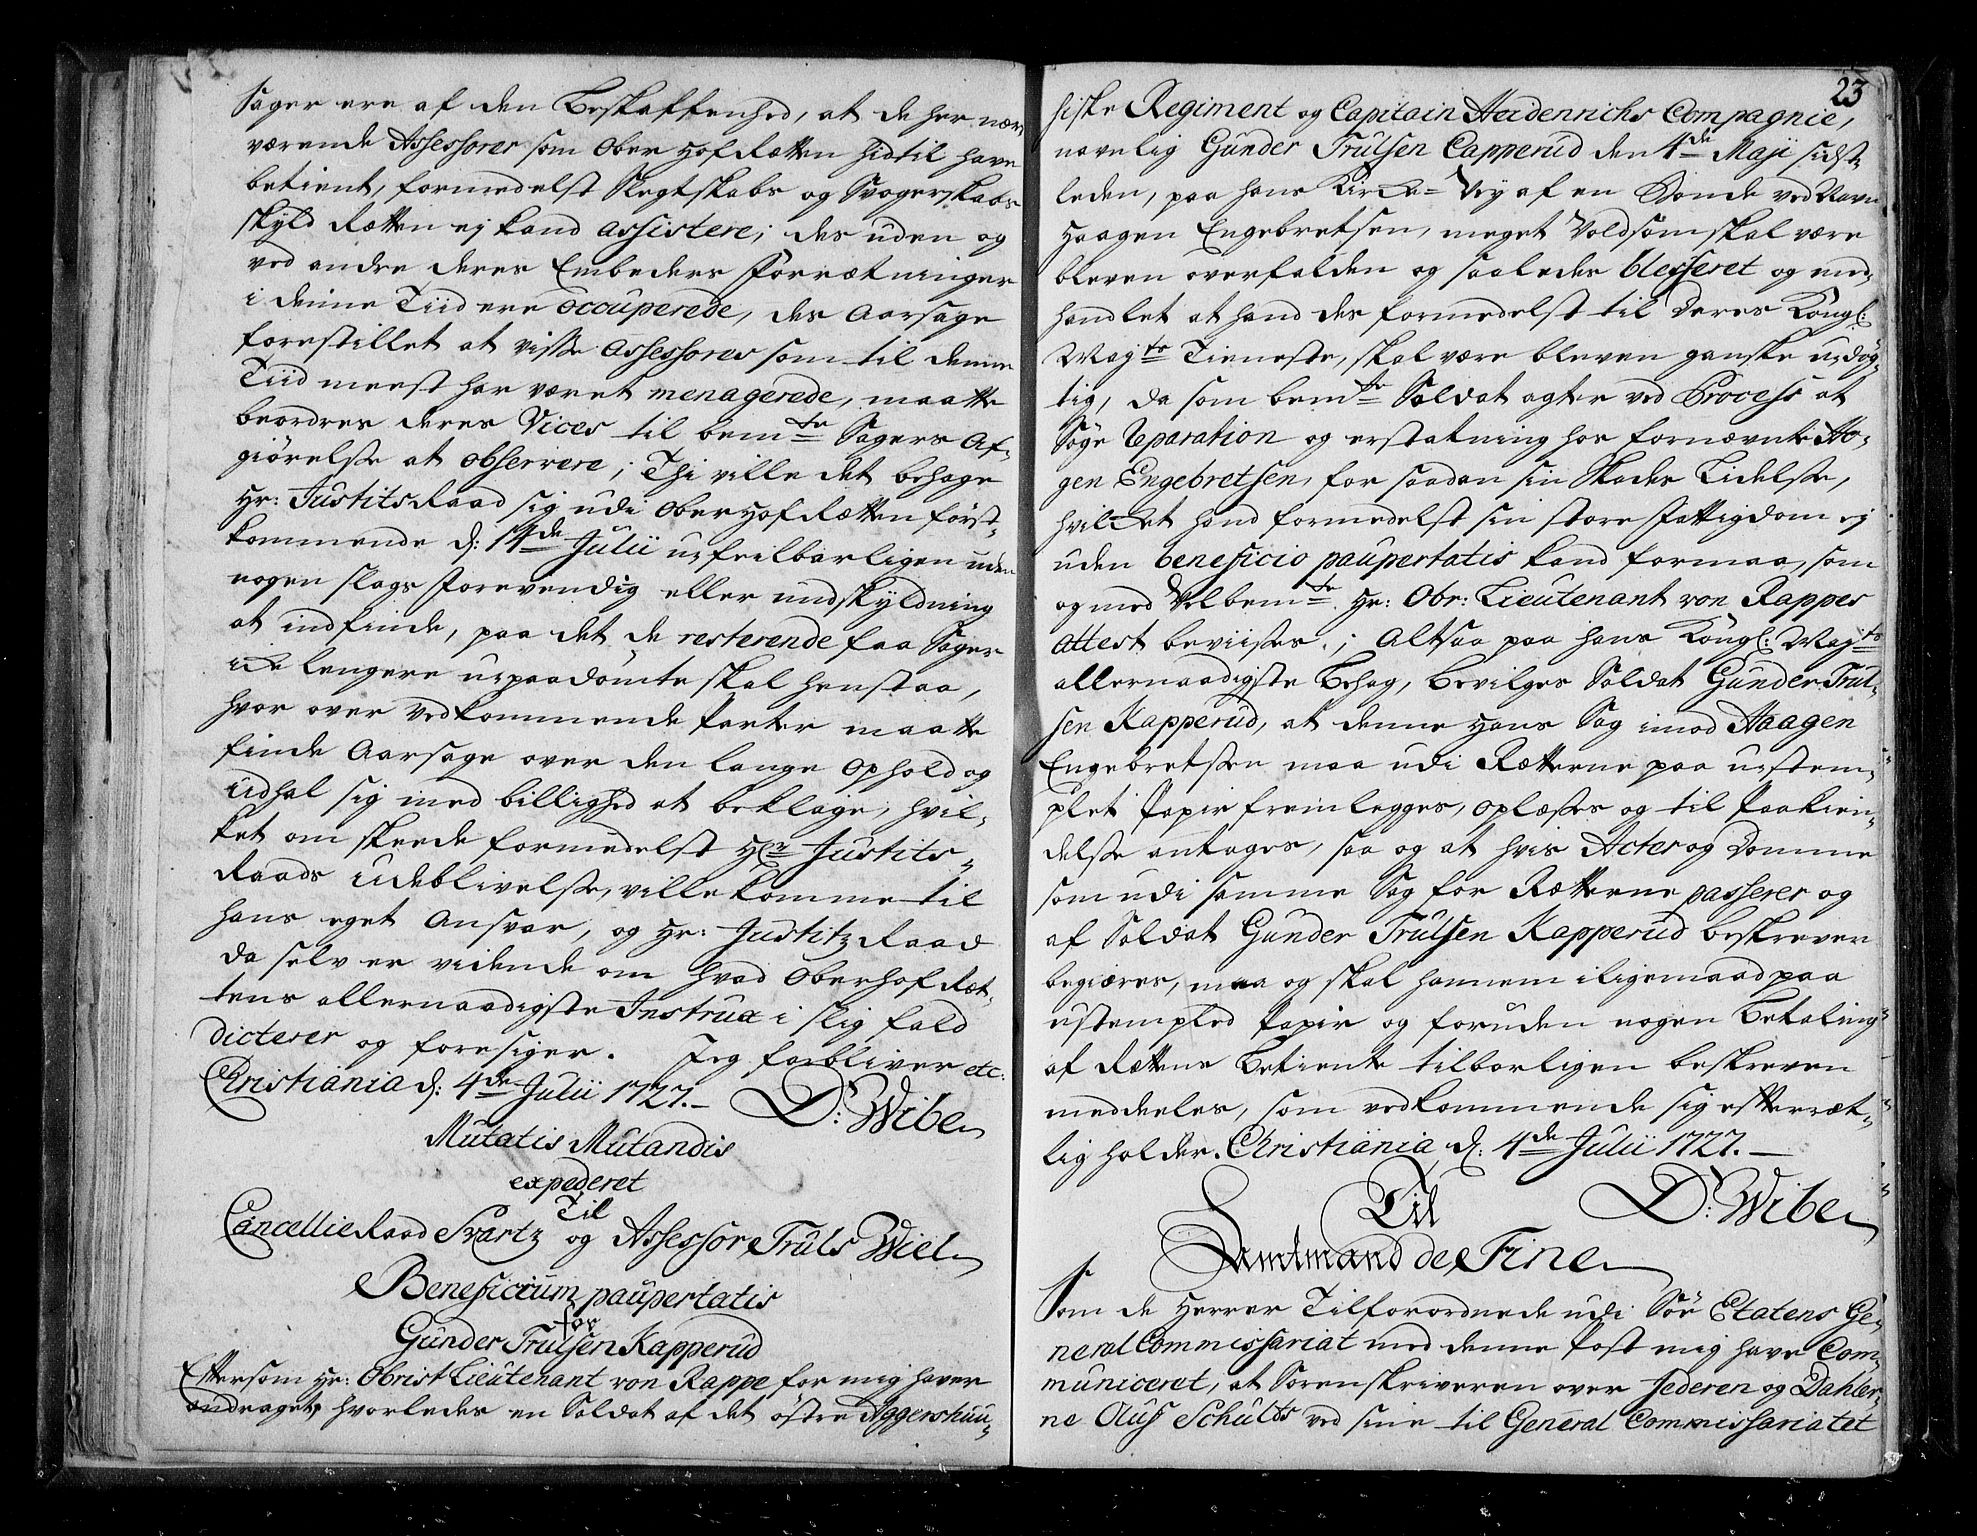 Sager ere af den Beskaffenhed, at de her nær,
værende Assessorer som Ober Hof Rætten hidtil have
betient, formedelst Slegtskabs og Svogerskabs
skyld Rætten ej kand assistere; des uden og
ved andre deres Embeders Forrætninger
i denne Tiid ere occuperede, des Aarsage
forestillet at visse Assessores som til denne
Tiid meest har været menagerede, maatte
beordres deres Vices til bem:te Sagers Af-
giørelse at observere; Thi ville det behage
Hr: Justits Raad sig udi Ober Hof Rætten først-
kommende d: 14de Julii ufeilbarligen uden
nogen slags Forevending eller undskyldning
at indfinde, paa det de resterende faa Sager
icke lengere upaadömte skal henstaa,
hvor over vedkommende Parter maatte
finde Aarsage over den lange Ophold og
Udhal sig med billighed at beklage, hvil-
ket om skeede formedelst Hr: Justits-
Raads Udeblivelse, ville komme til
hans eget Ansvar, og Hr: Justitz Raad
da selv er vidende om hvad Oberhof Ræt-
tens allernaadigste Instrux i slig fald
dicterer og foresiger. Jeg forbliver etc:
Christiania d: 4de Julii 1727.
D: Wibe
Mutatis Mutandis
expederet
Til
Cancellie Raad Svartz og Assessor Truls Wiel
Beneficium paupertatis
for
Gunder Trulsen Kapperud
Eftersom Hr: Obrist Lieutenant von Rappe for mig haver
andraget, hvorledes en Soldat af det östre Aggershuu-
23
siske Regiment og Capitain Heidenrichs Compagnie,
navnlig Gunder Trulsen Capperud den 4de Maji sidst-
leden, paa hans Kircke-Vej af en Bonde ved Navn
Haagen Engebretsen, meget Voldsom skal være
bleven overfalden og saaledes blesseret og med-
handlet at hand des formedelst til Deres Kongl:
May:ts Tieneste, skal være bleven ganske udög-
tig, da som bem:te Soldat agter ved Process at
Søge Reparation og erstatning hos fornævnte Ha-
gen Engebretsen, for saadan sin Skades Lidelse,
hvilcket hand formedelst sin store Fattigdom ej
uden beneficio paupertatis kand formaa, som
og med Velbem:te Hr: Obr: Lieutenant von Rappes
Attest beviises; Altsaa paa hans Kongl: May:ts
allernaadigste Behag, bevilges Soldat Gunder Trul-
sen Kapperud, at denne Hans Sag imod Haagen
Engebretsen maa udi Rætterne paa ustem-
plet Papir fremlegges, oplæses og til Paakien-
delse antages, saa og at hvis Acter og Domme
som udi samme Sag for Rætterne passerer og
af Soldat Gunder Trulsen Kapperud beskreven
begiæres, maa og skal hannem iligemaad paa
ustempled Papir og foruden nogen Betaling
af Rættens Betiente tilbørligen beskreven
meddeeles, som vedkommende sig efterræt-
lig holder. Christiania d: 4de Julii 1727.
D: Wibe
Til
Amtmand de Fine
Som de Herrer Tilforordnede udi Söe Etatens Ge-
neral Commissariat med denne Post mig have Com-
municeret, at Sorenskriveren over Jederen og Dahler-
ne Oluf Schults ved sine til General Commissariatet